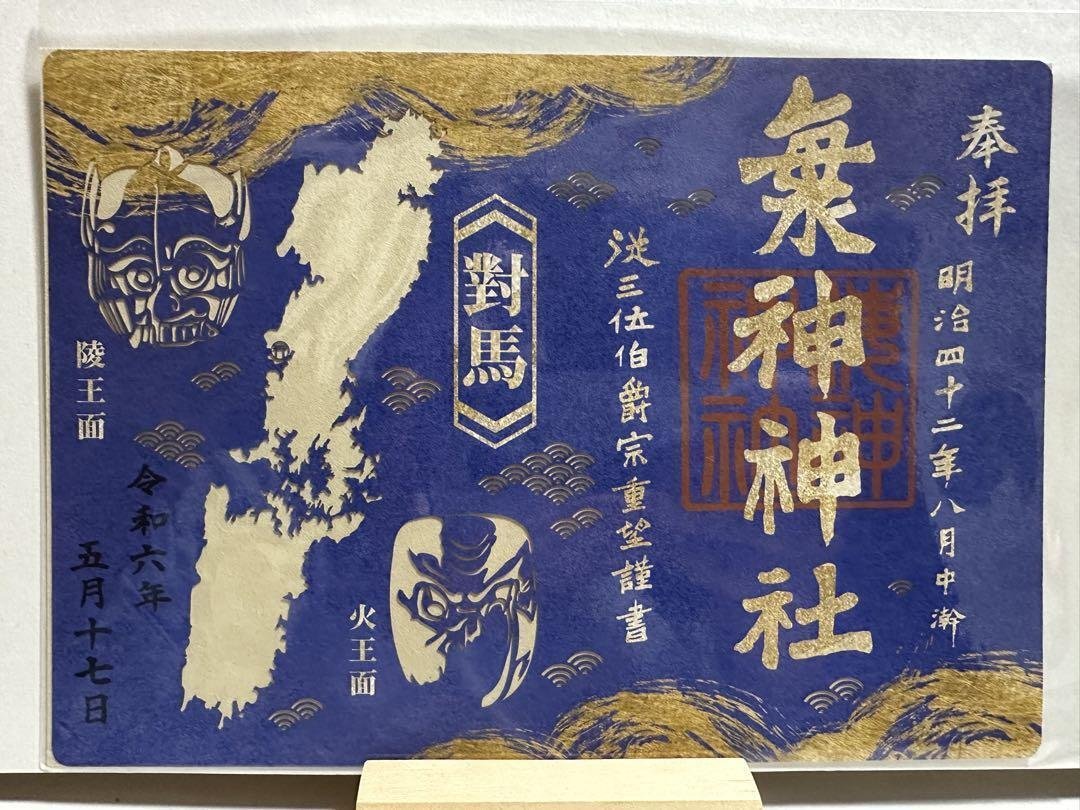 奉拝
明治四十二年八月中澣
海神神社
従三位伯爵宗重望謹書
對馬
火王面
陵王面
令和六年
五月十七日